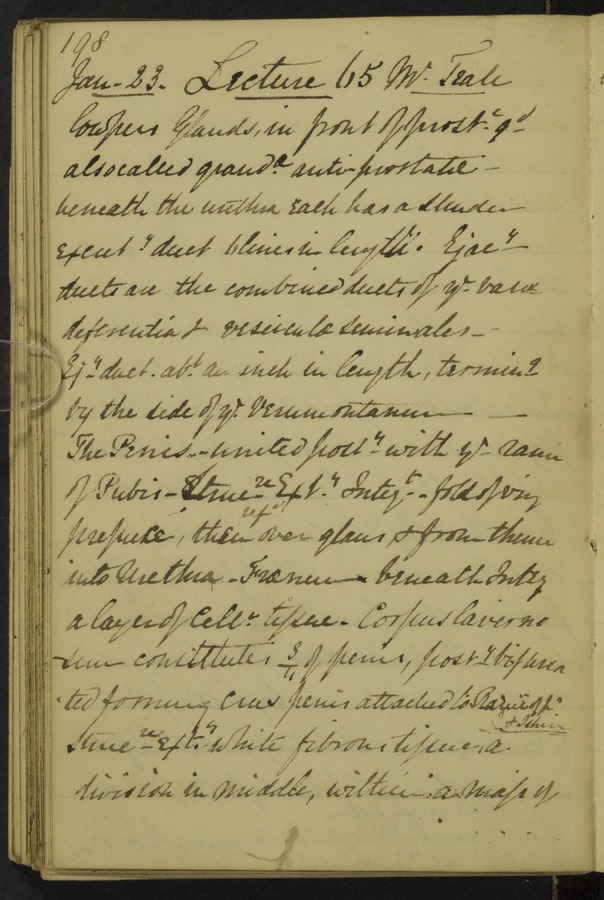 198
Jan- 23. Lecture 65 Mr. Teale
Cowpers Glands, in front of prost.e gd
also called grand.a anti-prostatæ -
beneath the urethra each has a slender
excret.y duct 6 lines in length. Ejac.y
ducts are the combined ducts of ye. vasa
deferentia & vesiculæ seminales -
Ej.y duct. abt. an inch in length, termin.g
by the side of ye. Verumontanum
The Penis. - united post.y with ye. rami
of Pubis - Struc.re Ext.y Integ.t - fold of
prepuce, then over glans, & from thence
into Urethra - Frænum - beneath Integ
a layer of cell.r tissue - Corpus Caverno
sum constitutes of penis, post.y bifurca
ted forming Crus penis attached to Rami of P.
& Ischium
struc.re ext.y white fibrous tissue, a
division in middle, within, a mass of